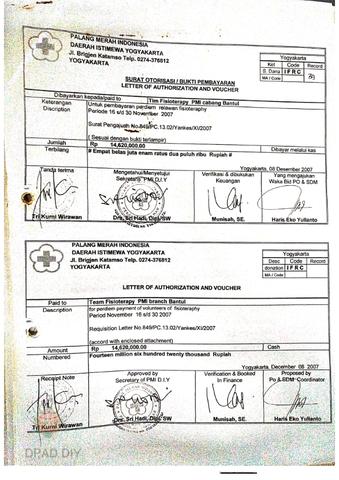 PALANG MERAH INDONESIA
DAERAH ISTIMEWA YOGYAKARTA
Jl. Brigjen Katamso Telp. 0274-376812
YOGYAKARTA
Yogyakarta
Kel Code Record
B. Dana I F R C
MA / Code
SURAT OTORISASI / BUKTI PEMBAYARAN
LETTER OF AUTHORIZATION AND VOUCHER
Dibayarkan kepada/paid to Tim Fisioterapy PMI cabang Bantul
Keterangan Untuk pembayaran perdiem relawan fisioterapy
Discription Periode 16 s/d 30 November 2007
Surat Pengajuan No.849/PC.13.02/Yankes/XI/2007
( Sesuai dengan bukti terlampir)
Jumlah Rp 14,620,000.00 Dibayar melalui kas
Terbilang # Empat belas juta enam ratus dua puluh ribu Rupiah #
Yogyakarta, 08 Desember 2007
Tanda terima Mengetahui/Menyetujui Verifikasi & dibukukan Yang mengajukan
Sekretaris PMI D.I.Y Keuangan Waka Bid PO & SDM
Tri Kurni Wirawan Drs. Sri Hadi, Dipl.SW Munisah, SE. Haris Eko Yulianto
PALANG MERAH INDONESIA
DAERAH ISTIMEWA YOGYAKARTA
Jl. Brigjen Katamso Telp. 0274-376812
YOGYAKARTA
Yogyakarta
Desc Code Record
donation I F R C
MA / Code
LETTER OF AUTHORIZATION AND VOUCHER
Paid to Team Fisioterapy PMI branch Bantul
Description for perdiem payment of volunteers of fisioterapy
Period November 16 s/d 30 2007
Requisition Letter No.849/PC.13.02/Yankes/XI/2007
(accord with enclosed attachment)
Amount Rp 14,620,000.00 Cash
Numbered Fourteen million six hundred twenty thousand Rupiah
Yogyakarta, December 08 2007
Receipt Note Approved by Verification & Booked Proposed by
Secretary of PMI D.I.Y In Finance Po & SDM Coordinator
Tri Kurni Wirawan Drs. Sri Hadi, Dipl.SW Munisah, SE. Haris Eko Yulianto
DPAD DIY